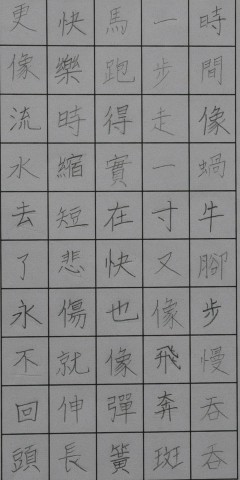 時間像蝸牛腳步慢吞吞
一步走一寸又像飛奔斑
馬跑得實在快也像彈簧
快樂時縮短悲傷就伸長
更像流水去了永不回頭